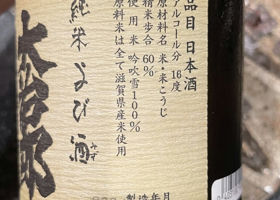 品目 日本酒
アルコール分 16度
原材料名 米・米こうじ
精米歩合 60%
使用米 吟吹雪100%
原料米は全て滋賀県産米使用
純米 よび酒
みず
大治郎
製造年月